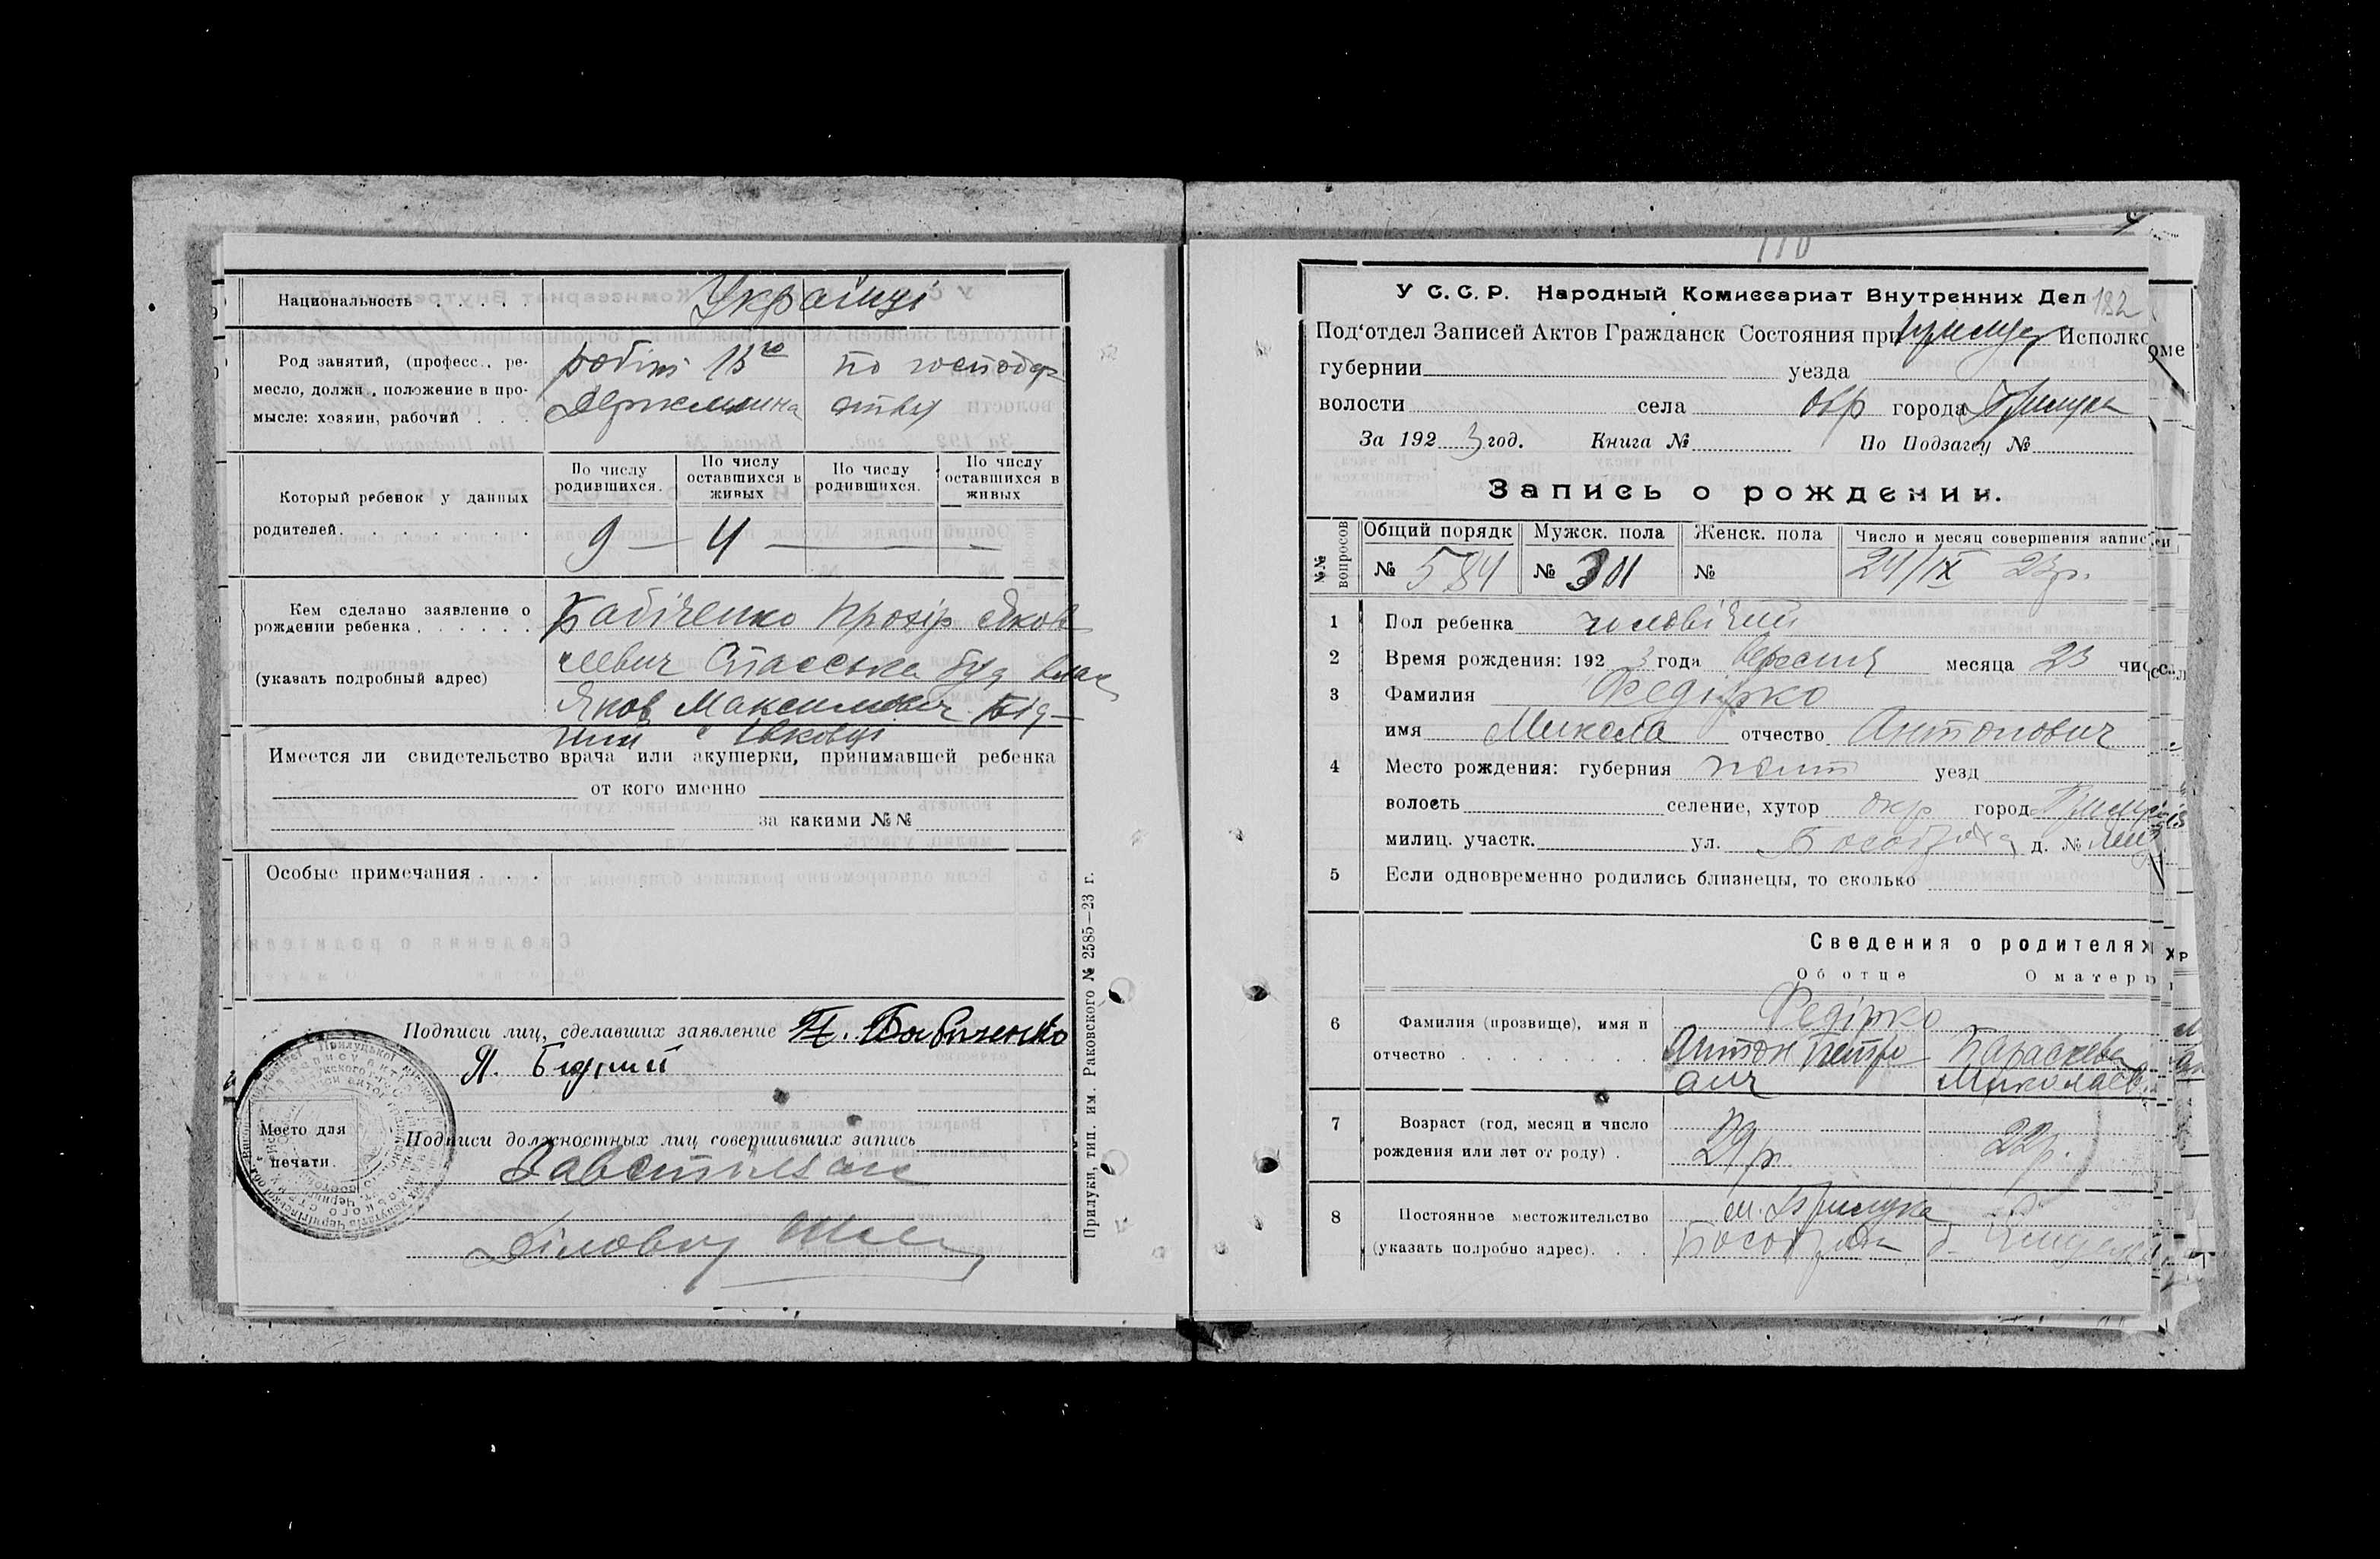 Национальность . . . . . Українці
Род занятий, (професс., ре-
месло, должн., положение в про-
мысле: хозяин, рабочий . . .
робітн 13го
Держмлина
по господар
ству
Который ребенок у данных
родителей. . . . . . . .
По числу родившихся.
По числу оставшихся в живых
По числу родившихся.
По числу оставшихся в живых
9 — 4 — —
Кем сделано заявление о
рождении ребенка . . . . . .
(указать подробный адрес)
Бабіченко Прохір Яков
левич Спасська буд влас
Яков Максимович Бід-
ний Івковці
Имеется ли свидетельство врача или акушерки, принимавшей ребенка
от кого именно
за какими №№
Особые примечания . . .
Подписи лиц, сделавших заявление П. Бабиченко
Я. Бидний
Место для
печати.
Подписи должностных лиц совершивших запись
Завстолом
Діловод
Прилуки, тип. им. Раковского № 2585—23 г.
110
У С. С. Р. Народный Комиссариат Внутренних Дел 182
Под'отдел Записей Актов Гражданск Состояния при Прилуц Исполко
губернии уезда
волости села окр города Прилуки
За 192 3 год. Книга № По Подзагсу №
Запись о рождении.
№№ вопросов
Общий порядк Мужск. пола Женск. пола Число и месяц совершения запис
№ 584 № 301 № 24/IX 23р.
1 Пол ребенка чоловічий
2 Время рождения: 192 3 года вересня месяца 23 чис
3 Фамилия Федірко
имя Микола отчество Антонович
4 Место рождения: губерния Полт уезд
волость селение, хутор окр город Прилуки
милиц. участк. ул. д. №
5 Если одновременно родились близнецы, то сколько
Сведения о родителях
Об отце О матери
6 Фамилия (прозвище), имя и
отчество . . . . . . . .
Федірко
Антон Петро
вич
Параскева
Миколаєв
7 Возраст (год, месяц и число
рождения или лет от роду) .
29р. 22р.
8 Постоянное местожительство
(указать подробно адрес). . .
м. Прилука